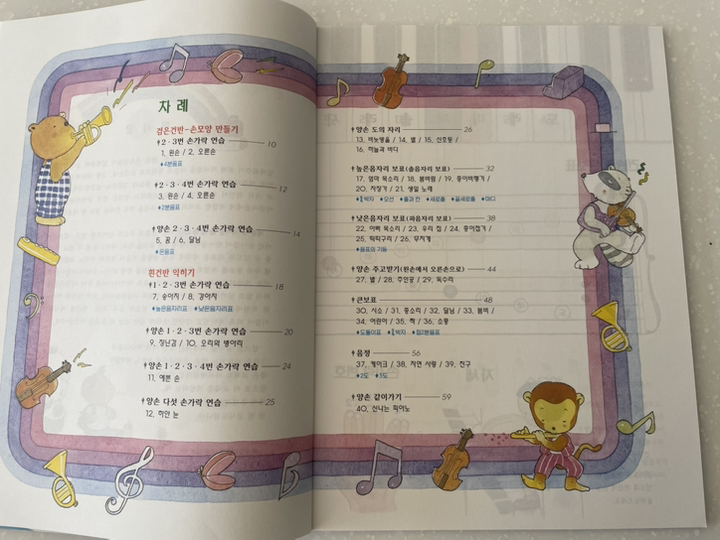 차 례
검은건반-손모양 만들기
2·3번 손가락 연습 10
1, 왼손 / 2, 오른손
♦4분음표
2·3·4번 손가락 연습 12
3, 왼손 / 4, 오른손
♦2분음표
양손 2·3·4번 손가락 연습 14
5, 꿈 / 6, 달님
♦온음표
흰건반 익히기
1·2·3번 손가락 연습 18
7, 송아지 / 8, 강아지
♦높은음자리표 ♦낮은음자리표
양손 1·2·3번 손가락 연습 20
9, 장난감 / 10, 오리와 병아리
양손 1·2·3·4번 손가락 연습 24
11, 예쁜 손
양손 다섯 손가락 연습 25
12, 하얀 눈
양손 도의 자리 26
13, 비눗방울 / 14, 별 / 15, 신호등 /
16, 하늘과 바다
높은음자리 보표(솔음자리 보표) 32
17, 엄마 목소리 / 18, 봄바람 / 19, 종이비행기 /
20, 자장가 / 21, 생일 노래
박자 ♦오선 ♦줄과 칸 ♦세로줄 ♦끝세로줄 ♦마디
낮은음자리 보표(파음자리 보표) 38
22, 아빠 목소리 / 23, 우리 집 / 24, 종이접기 /
25, 딱따구리 / 26, 무지개
♦음표의 기둥
양손 주고받기(왼손에서 오른손으로) 44
27, 별 / 28, 주인공 / 29, 독수리
큰보표 48
30, 시소 / 31, 종소리 / 32, 달님 / 33, 봄비 /
34, 어린이 / 35, 책 / 36, 소풍
♦도돌이표 박자 ♦점2분음표
음정 56
37, 케이크 / 38, 자연 사랑 / 39, 친구
♦2도 ♦3도
양손 같이가기 59
40, 신나는 피아노